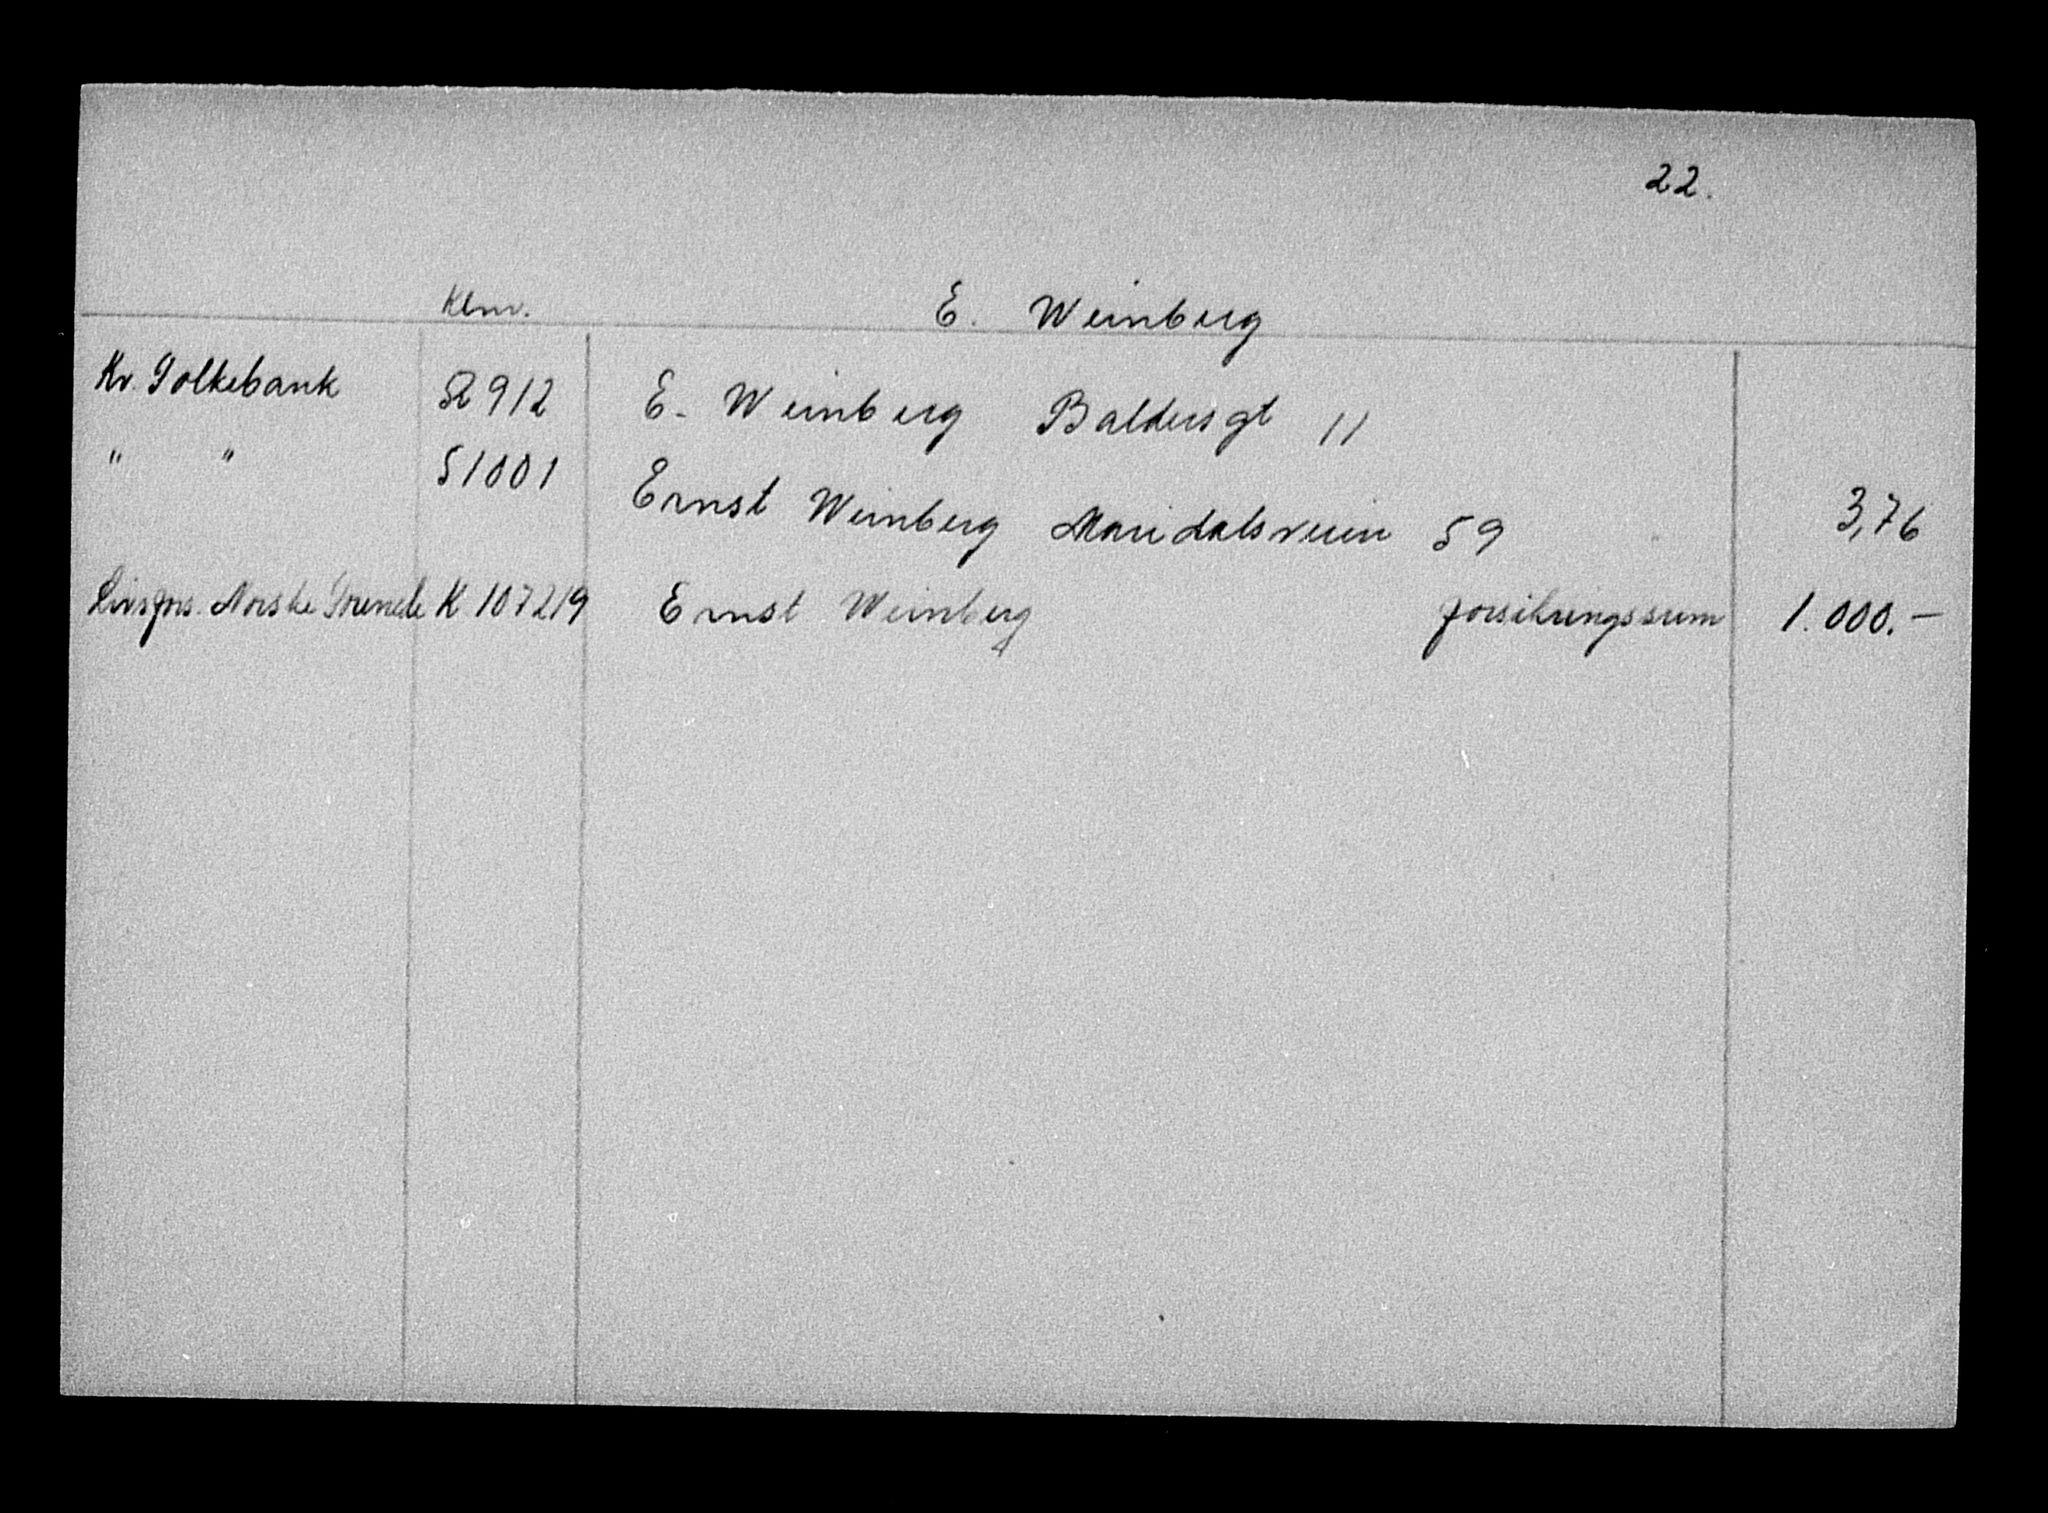 22.
Klnr. E. Weinberg
Kr. Folkebank 52912 E. Weinberg Baldersgt 11
" " 51001 Ernst Weinberg Maridalsveien 59 3,76
Livsfors. Norske Forende K 107219 Ernst Weinberg forsikringssum 1.000.-